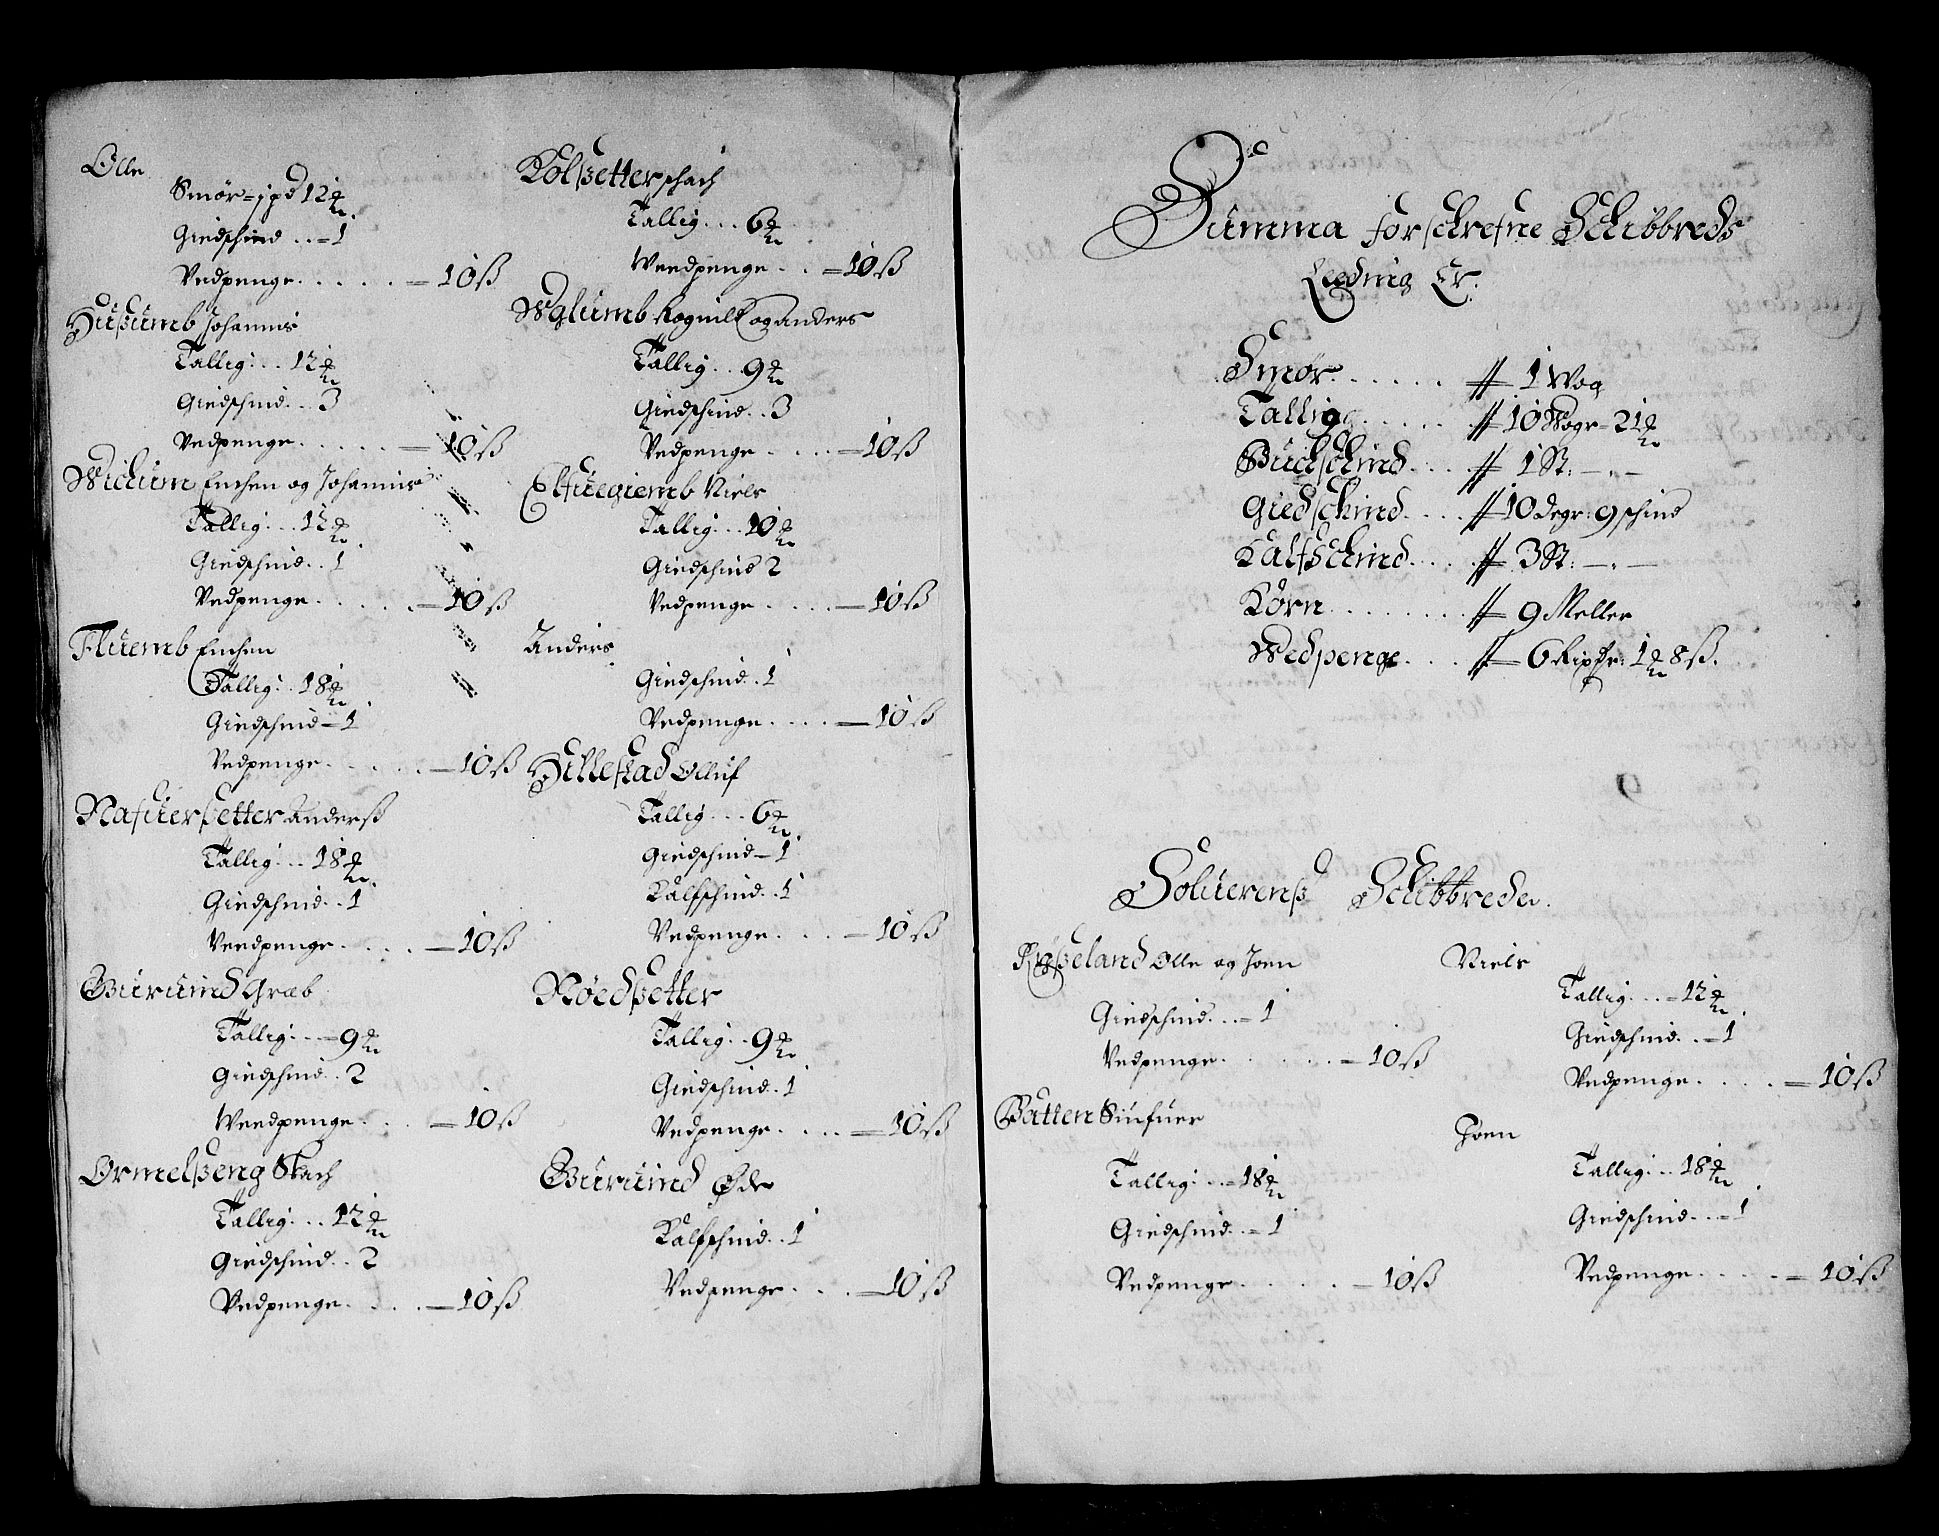 Olle
Smör = j pd 12 ℔.
Giedschind . . = 1
Vedpenge . . . . . = 10 ß
Hußumb Johannis
Tallig . . 12 ℔
Giedschind . . 3
Vedpenge . . . . . = 10 ß
Wichum Enchen og Johannis
Tallig . . 12 ℔
Giedschind . . 1
Vedpenge . . . . . = 10 ß
Fluemb Enchen
Tallig . . 18 ℔
Giedschind = 1
Vedpenge . . . . . = 10 ß
Nafuerßetter Anderß
Tallig . . 18 ℔.
Giedschind . . 1
Veedpenge . . . . = 10 ß
Buruind Grab
Tallig . . = 9 ℔
Giedschind . . 2
Weedpenge . . . = 10 ß
Ormelßeng Skach
Tallig . . . 12 ℔
Giedschind . . 2
Vedpenge . . . . = 10 ß
Kolßetter schach
Tallig . . . 6 ℔
Weedpenge . . = 10 ß
Wglumb Rognill og Anders
Tallig . . 9 ℔
Giedschind . . 3
Vedpenge . . . . = 10 ß
Elfuegiemb Niels
Tallig . . . 10 ℔
Giedschind 2
Vedpenge . . . . = 10 ß
Anders
Giedschind . 1
Vedpenge . . . . = 10 ß
Hillestad Olluf
Tallig . . . 6 ℔.
Giedschind = 1
Kalfschind . 1
Vedpenge . . . . = 10 ß
Nöedßetter
Tallig . . 9 ℔
Giedschind . 1
Vedpenge . . . . = 10 ß
Buruind Øde
Kalfschind . . 1
Vedpenge . . . = 10 ß
Summa forschrefne Schibbreds
Leeding Er:
Smør . . . . . . # 1 Wog
Tallig . . . . . . # 10 Wogr = 21 ℔
Buchschind . . . . # 1 St: — . —
Giedschind . . . . # 10 Degr: 9 schind
Kalfschind . . . . # 3 St: — . —
Körn . . . . . . . . # 9 Meller
Wedpenge . . . . # 6 Ripdr: 1 ℔ 8 ß.
Soluerenß Schibbrede.
Røßeland Olle og Joen
Giedschind . . = 1
Vedpenge . . . . . . = 10 ß
Batten Siufuer
Tallig . . = 18 ℔
Giedschind . . = 1
Vedpenge . . . . . = 10 ß
Niels
Tallig . . . = 12 ℔.
Giedschind . . = 1
Vedpenge . . . . = 10 ß
Joen
Tallig . . 18 ℔
Giedschind . . = 1
Vedpenge . . . . . = 10 ß